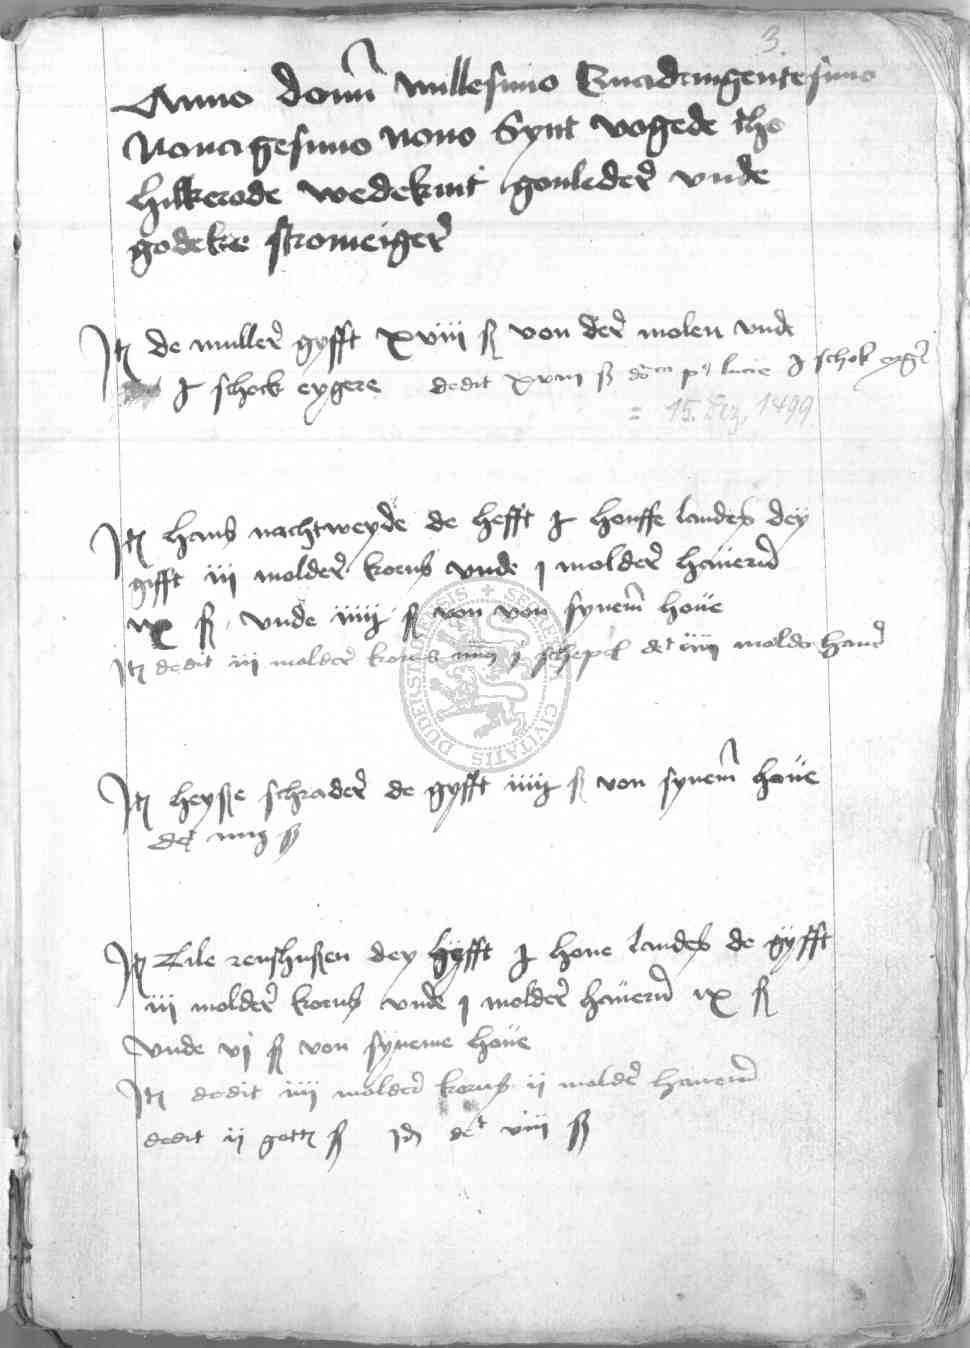 3.
Anno domini millesimo Quadringentesimo
Nonagesimo nono Synt vogede tho
hilkerode wedekint gonleder vnde
godeke stromeiger
Jt de muller gyfft xviii ß von der molen vnde
I schock eygere dedit xviii ß lucie I schok eyger
= 15. Dez. 1499.
Jt hans nachtweyde de hefft I houffe landes dey
gifft iii molder korns vnde i molder hauern
ix ß vnde iiii ß von von synem houe
Jt dedit iii molder korns i schepel dt iiii molder hauer
Jt heyße schrader de gyfft iiii ß von synem houe
dt iiii ß
Jt Tile renshußen dey hyfft I houe landes de gyfft
iii molder korns vnde i molder hauern ix ß
vnde vi ß von syneme houe
Jt dedit iiii molder korns ii molder hauern
dedit ii gott ß dt viii ß
SECRETVM CIVITATIS DVDERSTADENSIS